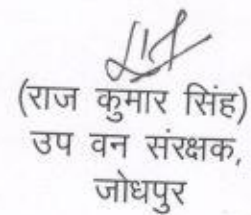 (राज कुमार सिंह)
उप वन संरक्षक,
जोधपुर